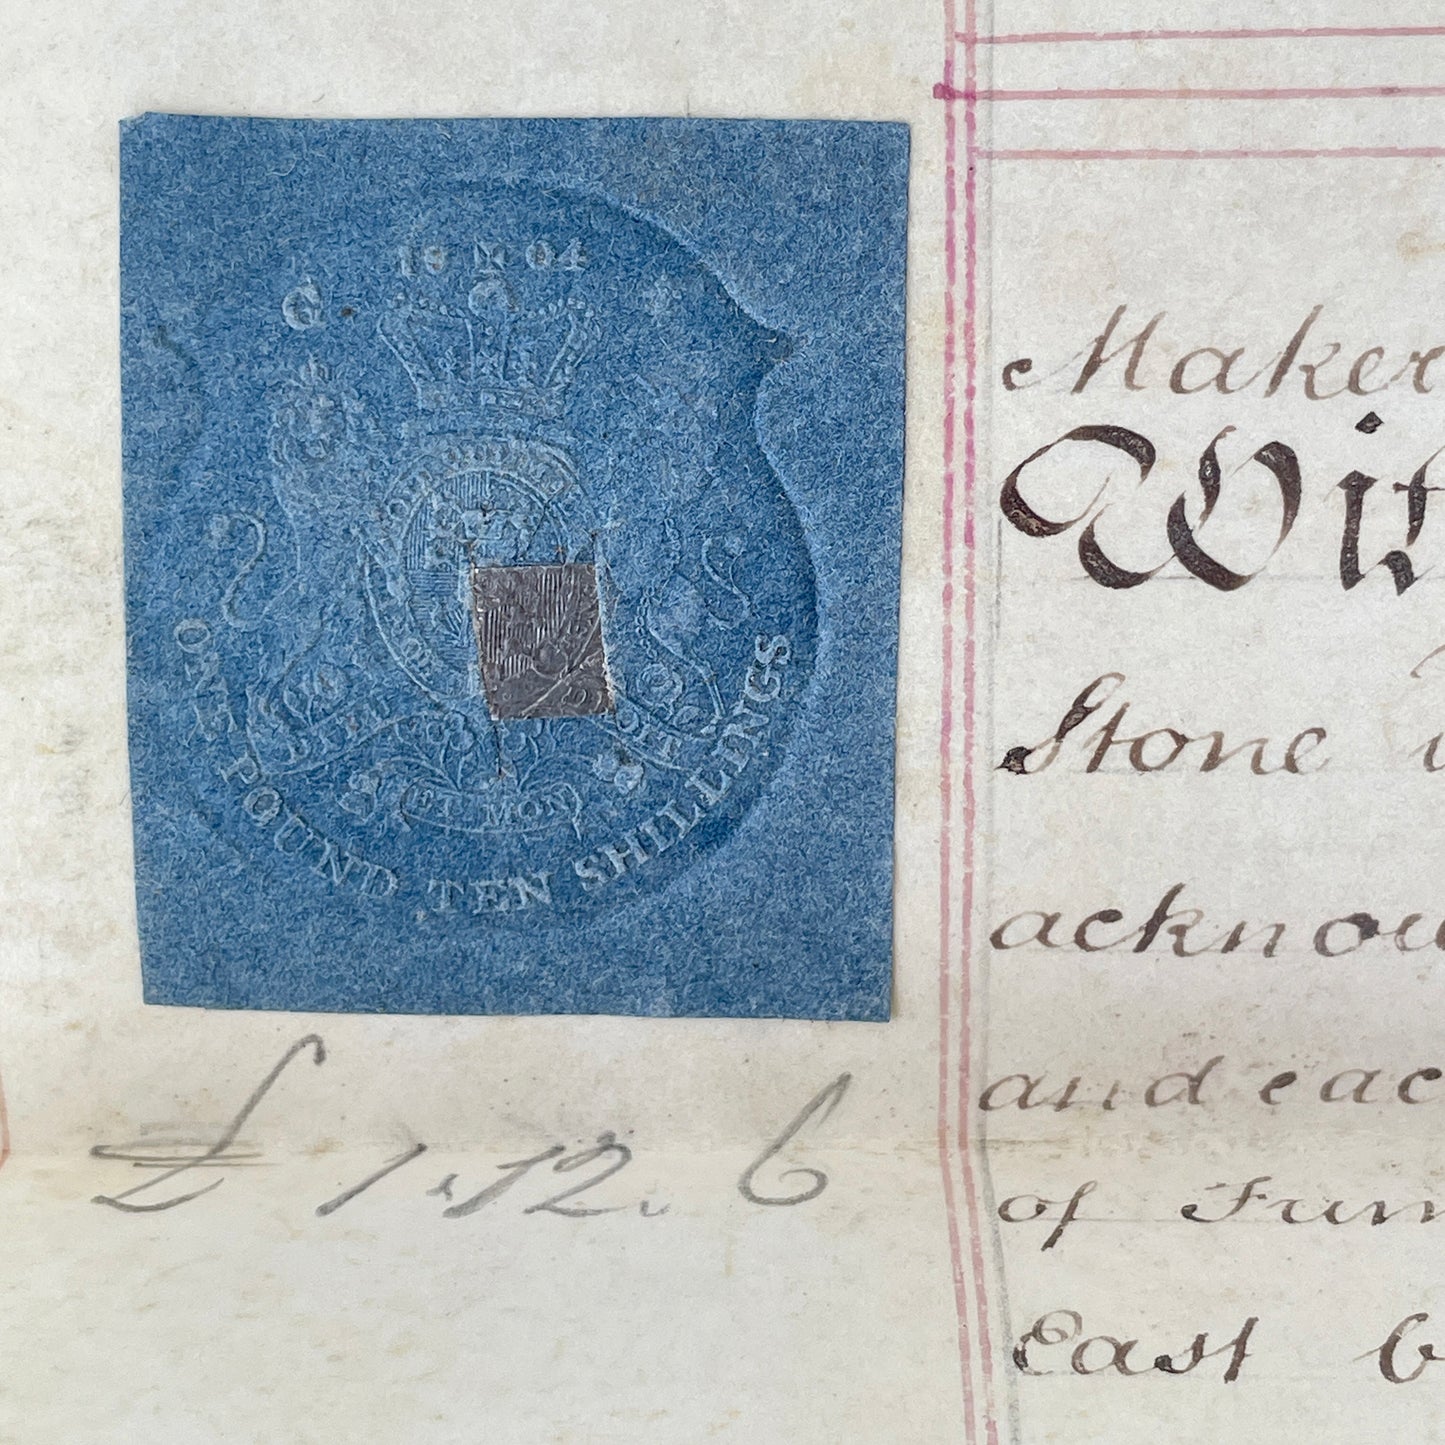 18 M 04
G
ONE POUND TEN SHILLINGS
ET MON
£ 1.12.6
Maker
Wit
Stone
acknow
and eac
of Fun
East b